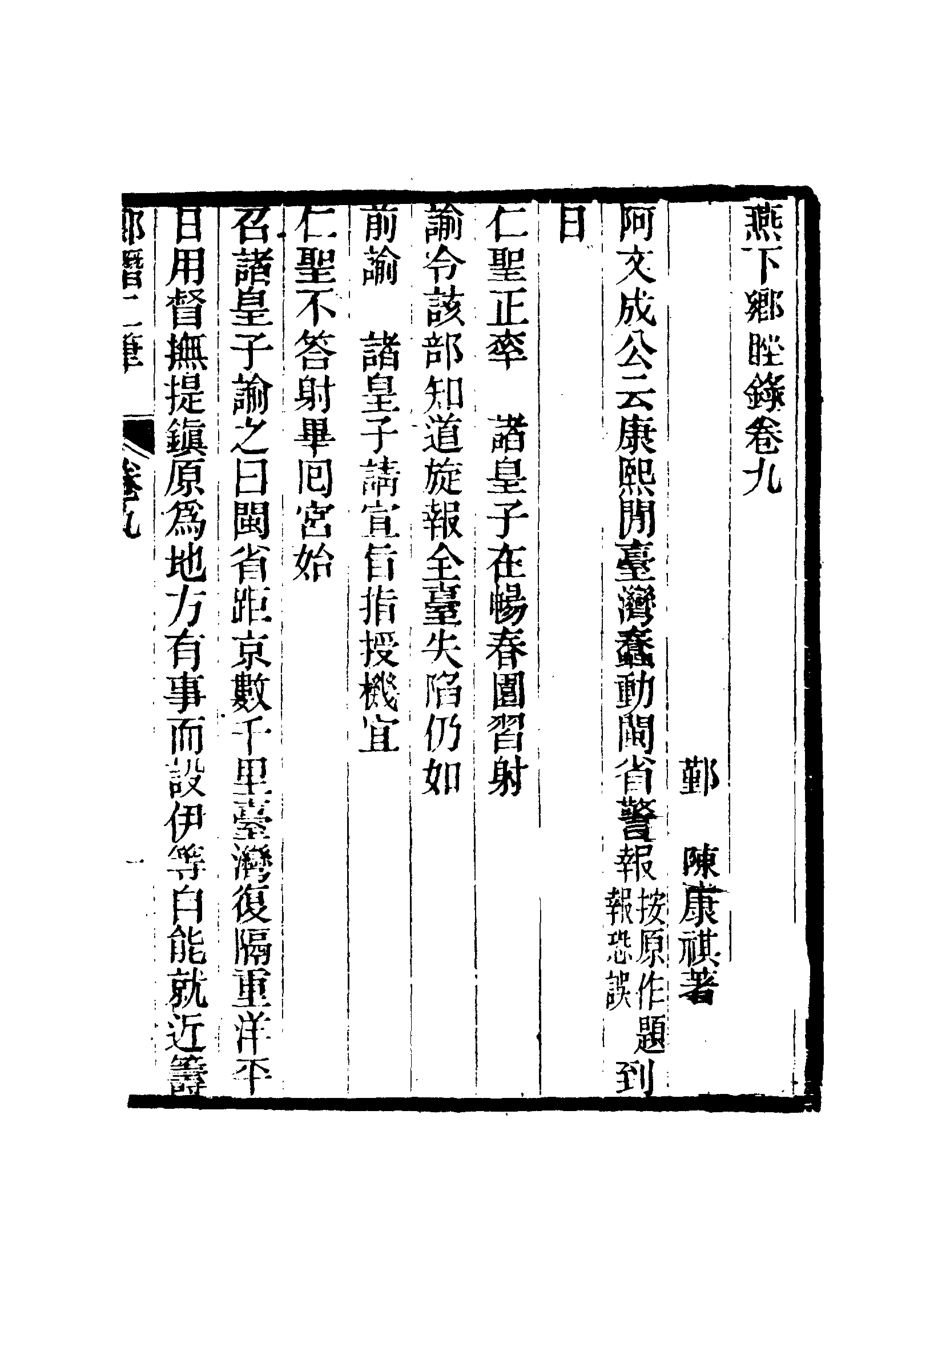 燕下鄉脞錄卷九
鄞　陳康祺著
阿文成公云康熙閒臺灣蠢動閩省警報按原作題報恐誤到
日
仁聖正率　諸皇子在暢春園習射
諭令該部知道旋報全臺失陷仍如
前諭　諸皇子請宣旨指授機宜
仁聖不答射畢囘宮始
召諸皇子諭之曰閩省距京數千里臺灣復隔重洋平
日用督撫提鎮原爲地方有事而設伊等自能就近籌
郎潛二筆　卷九　一